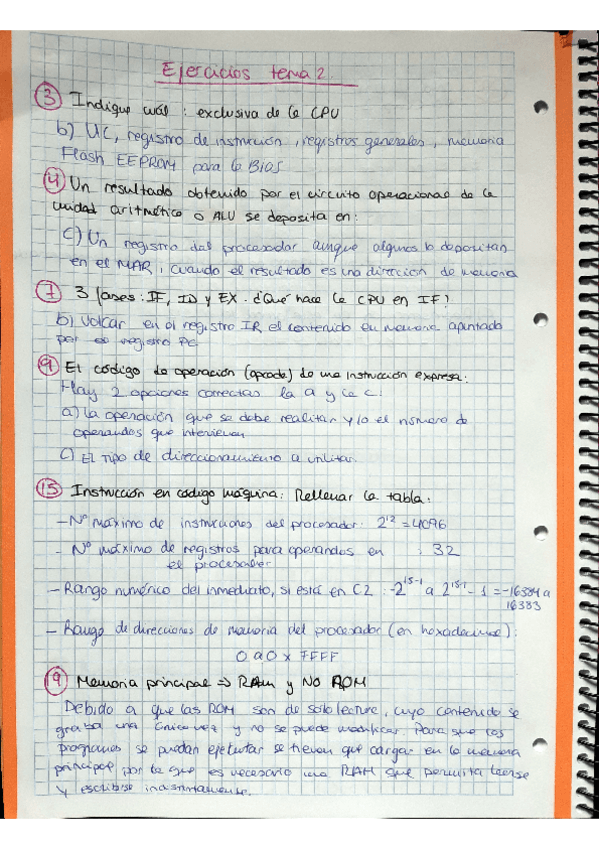 Ejercicios tema 2
③ Indique cuál : exclusiva de la CPU
b) UC, registro de instrucción, registros generales, memoria
Flash EEPROM para la BIOS
④ Un resultado obtenido por el circuito operacional de la
unidad aritmético o ALU se deposita en:
c) Un registro del procesador aunque algunos lo depositan
en el MAR, cuando el resultado es una dirección de memoria
⑦ 3 fases: IF, ID y EX. ¿Qué hace la CPU en IF?
b) Volcar en el registro IR el contenido en memoria apuntado
por el registro PC
⑨ El código de operación (opcode) de una instrucción expresa:
Hay 2 opciones correctas la a y la c:
a) La operación que se debe realizar y/o el número de
operandos que intervienen
c) El tipo de direccionamiento a utilizar.
⑮ Instrucción en código máquina: Rellenar la tabla:
- Nº máximo de instrucciones del procesador: 2^12 = 4096
- Nº máximo de registros para operandos en : 32
el procesador
- Rango numérico del inmediato, si está en C2 : -2^15-1 a 2^15-1 - 1 = -16384 a
16383
- Rango de direcciones de memoria del procesador (en hexadecimal):
0 a 0x7FFF
⑲ Memoria principal => RAM y NO ROM
Debido a que las ROM son de solo lectura, cuyo contenido se
graba una única vez y no se puede modificar. Para que los
programas se puedan ejecutar se tienen que cargar en la memoria
principal por lo que es necesario una RAM que permita leerse
y escribirse indistintamente.